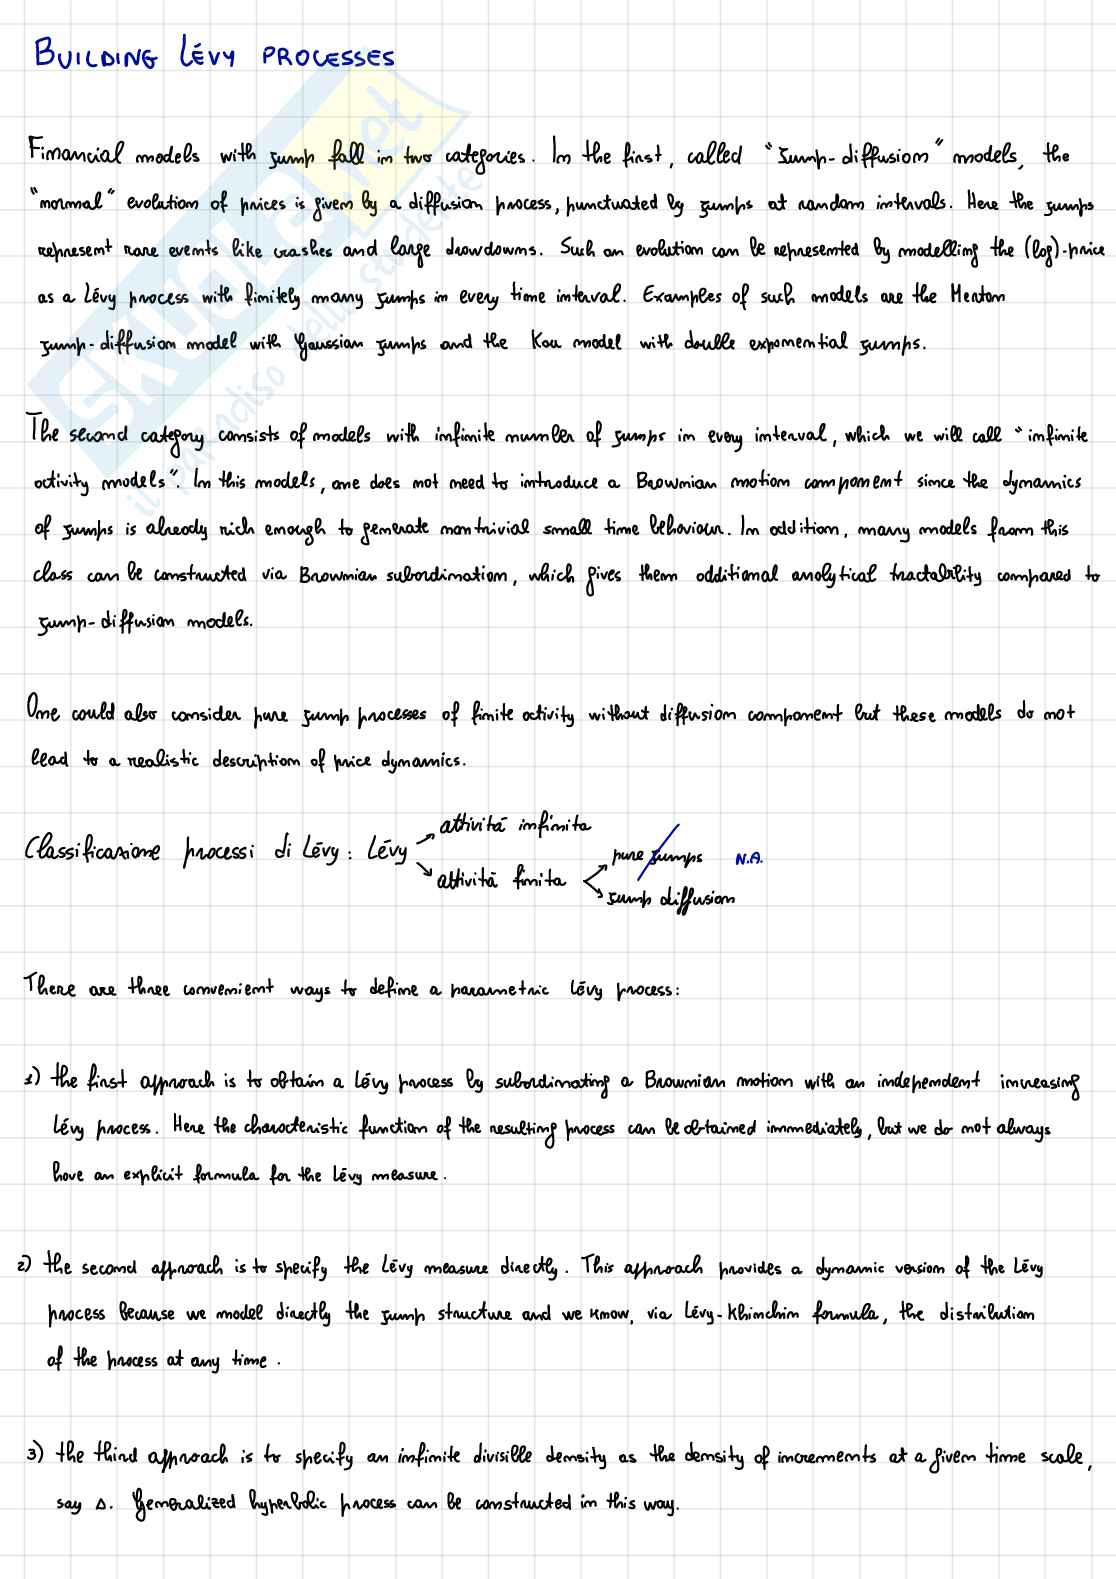 BUILDING LÉVY PROCESSES
Financial models with jump fall in two categories. In the first, called "Jump-diffusion" models, the
"normal" evolution of prices is given by a diffusion process, punctuated by jumps at random intervals. Here the jumps
represent rare events like crashes and large drowdowns. Such an evolution can be represented by modelling the (log)-price
as a Lévy process with finitely many jumps in every time interval. Examples of such models are the Merton
jump-diffusion model with Gaussian jumps and the Kou model with double exponential jumps.
The second category consists of models with infinite number of jumps in every interval, which we will call "infinite
activity models". In this models, one does not need to introduce a Brownian motion component since the dynamics
of jumps is already rich enough to generate nontrivial small time behaviour. In addition, many models from this
class can be constructed via Brownian subordination, which gives them additional analytical tractability compared to
jump-diffusion models.
One could also consider pure jump processes of finite activity without diffusion component but these models do not
lead to a realistic description of price dynamics.
Classificazione processi di Lévy: Lévy
attività infinita
attività finita
pure jumps N.A.
jump diffusion
There are three convenient ways to define a parametric Lévy process:
1) the first approach is to obtain a Lévy process by subordinating a Brownian motion with an independent increasing
Lévy process. Here the characteristic function of the resulting process can be obtained immediately, but we do not always
have an explicit formula for the Lévy measure.
2) the second approach is to specify the Lévy measure directly. This approach provides a dynamic version of the Lévy
process because we model directly the jump structure and we know, via Lévy-Khinchin formula, the distribution
of the process at any time.
3) the third approach is to specify an infinite divisible density as the density of increments at a given time scale,
say Δ. Generalized hyperbolic process can be constructed in this way.
skuola.net
il paradiso dello studente